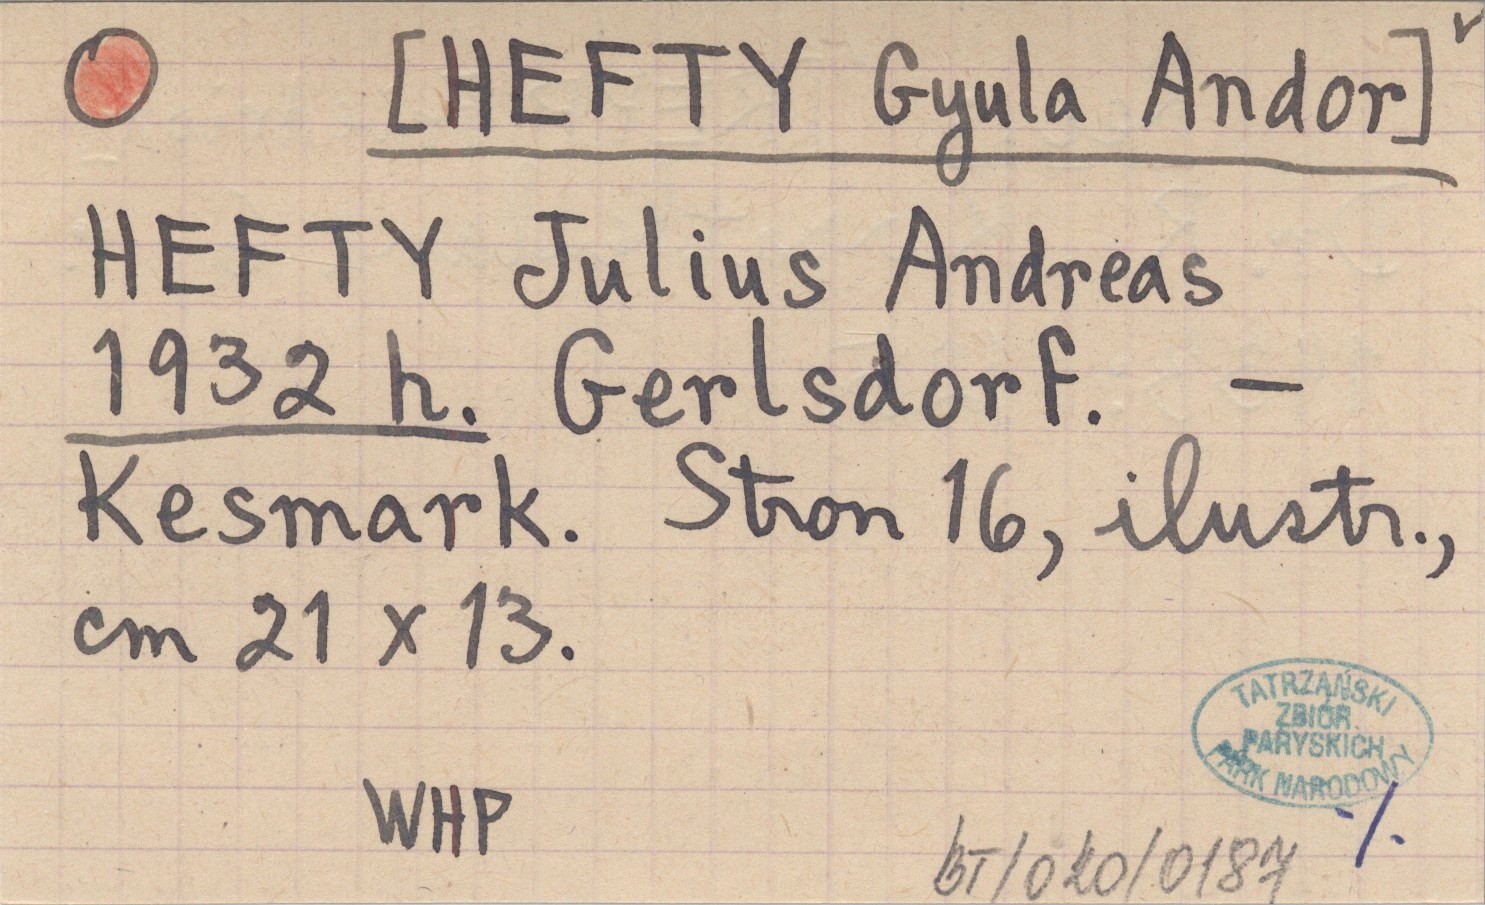 [HEFTY Gyula Andor]
HEFTY Julius Andreas
1932 h. Gerlsdorf. —
Kesmark. Stron 16, ilustr.,
cm 21 x 13.
TATRZAŃSKI
ZBIÓR
PARYSKICH
PARK NARODOWY
WHP
-/.
BT/020/0187